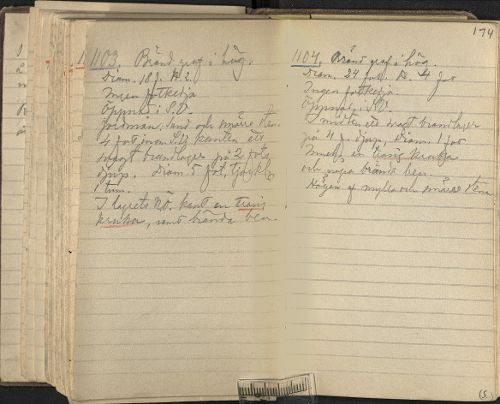 1103. Bränd graf i hög.
Diam. 18 f. H. 2.
Ingen fotkedja
Öppnad i S.O.
Jordmån, sand och smärre sten.
4 fot inom S.O. kanten ett
svagt brandlager på 2 fots
djup. Diam 5 fot, tjockl.
1 tum.
I lagrets N.O. kant en trasig
kruka, samt brända ben.
174
1104. Bränd graf i hög.
Diam. 24 fot. H. 4 fot
Ingen fotkedja.
Öppnad i S.O.
I midten ett svagt brandlager
på 4 f. djup. Diam. 1 fot
en trasig kruka
och några brända ben.
Högen af mylla och smärre sten.